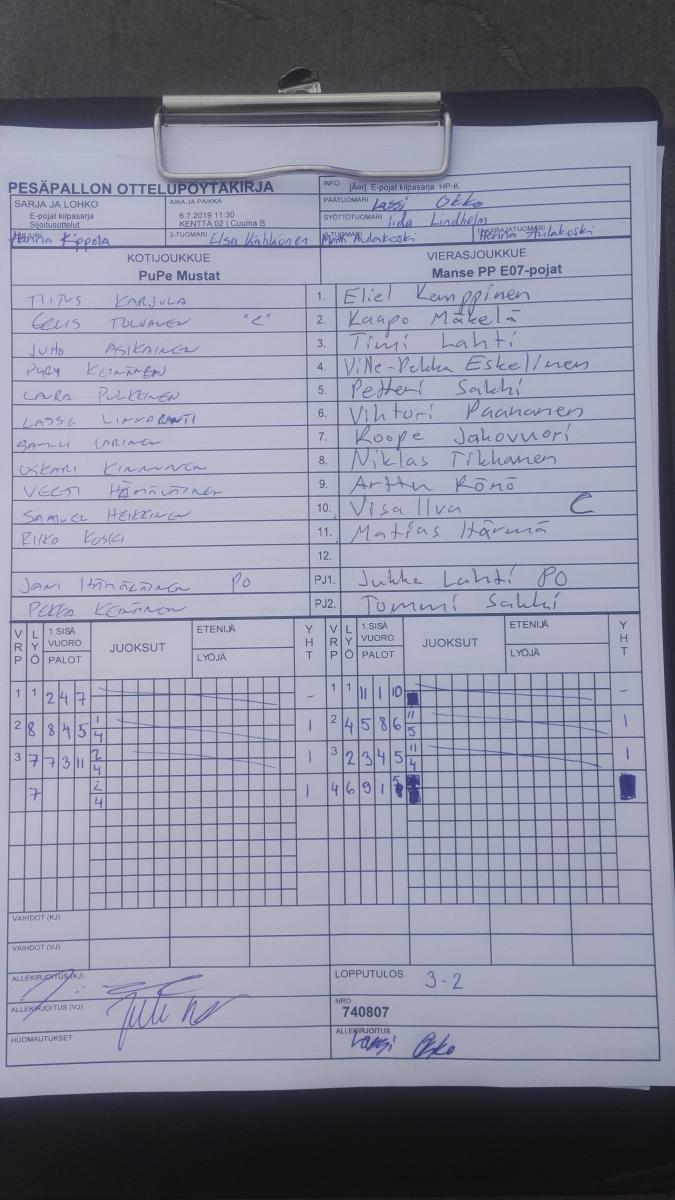 PESÄPALLON OTTELUPÖYTÄKIRJA
INFO jÃ¤rj. E-pojat kilpasarja: HP-K
SARJA JA LOHKO
E-pojat kilpasarja
Sijoitusottelut
AIKA JA PAIKKA
6.7.2019 11:30
KENTTÄ 02 | Cuuma B
PÄÄTUOMARI Lassi Okko
SYÖTTÖTUOMARI Iida Lindholm
KIRJURI Hanna Kippola
2-TUOMARI Elsa Kähkönen
3-TUOMARI Aulakoski
TAKARAJATUOMARI Henna Aulakoski
KOTIJOUKKUE
PuPe Mustat
VIERASJOUKKUE
Manse PP E07-pojat
TIITUS KARJULA 1. Eliel Kemppinen
EELIS TOLVANEN "C" 2. Kaapo Mäkelä
JUHO ASIKAINEN 3. Timi Lahti
KEINÄNEN 4. Ville-Pekka Eskelinen
LAURA PULKKINEN 5. Petteri Sakki
LASSE LINNARANTI 6. Vihtori Paananen
SAMULI LARINEN 7. Roope Jakovuori
OSKARI KINNUNEN 8. Niklas Tikkanen
VEETI HÄMÄLÄINEN 9. Arttu Rönö
SAMUEL HEIKKINEN 10. Visa Ilva C
RIIKO KOSKI 11. Matias Härmä
12.
JANI HÄMÄLÄINEN PO PJ1. Jukka Lahti PO
PEKKA KEINÄNEN PJ2. Tommi Sakki
VRP LYÖ 1.SISÄ VUORO PALOT JUOKSUT ETENIJÄ LYÖJÄ YHT VRP LYÖ 1.SISÄ VUORO PALOT JUOKSUT ETENIJÄ LYÖJÄ YHT
1 1 2 4 7 - 1 1 11 1 10 -
2 8 8 4 5 1/4 1 2 4 5 8 6 11/5 1
3 7 7 3 11 2/4 1 3 2 3 4 5 11/4 1
7 2/4 1 4 6 9 1
VAIHDOT (KJ)
VAIHDOT (VJ)
ALLEKIRJOITUS (KJ)
LOPPUTULOS 3-2
ALLEKIRJOITUS (VJ)
NRO
740807
HUOMAUTUKSET
ALLEKIRJOITUS
Lassi Okko